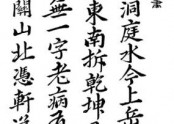 洞庭水今上岳
東南拆乾坤
無一字老病
關山北憑軒